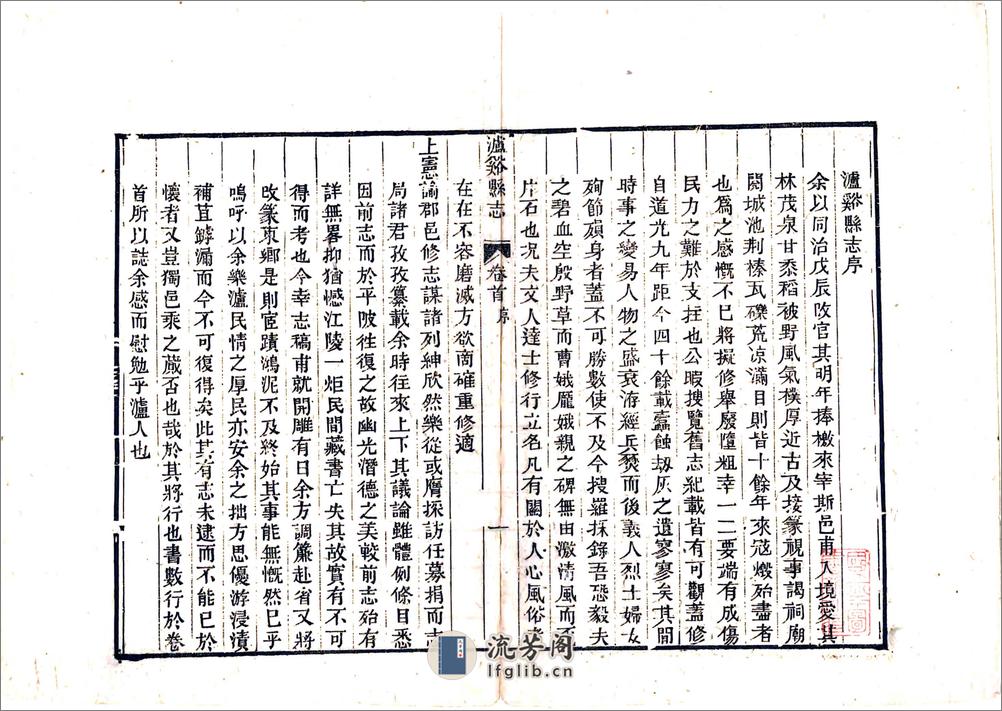 瀘谿縣志序
余以同治戊辰改官其明年捧檄來宰斯邑甫入境愛其
林茂泉甘黍稻被野風氣樸厚近古及接篆視事謁祠廟
閱城池荆榛瓦礫荒凉滿目則皆十餘年來冦燬殆盡者
也爲之感慨不已將擬修舉廢墮粗幸一二要端有成傷
民力之難於支拄也公暇搜覽舊志紀載皆有可觀蓋修
自道光九年距今四十餘載蠹蝕刼灰之遺寥寥矣其間
時事之變易人物之盛衰洊經兵燹而後義人烈士婦女
殉節殞身者蓋不可勝數使不及今搜羅採錄吾恐毅夫
之碧血空殷野草而曹娥龎娥親之碑無由激清風而
片石也况夫文人達士修行立名凡有關於人心風俗
瀘谿縣志 卷首 序 一
在在不容磨滅方欲商確重修適
上憲諭郡邑修志謀諸列紳欣然樂從或膺採訪任募捐而
局諸君孜孜纂載余時往來上下其議論雖體例條目悉
因前志而於平陂往復之故幽光潛德之美較前志殆有
詳無畧抑猶憾江陵一炬民間藏書亡失其故實有不可
得而考也今幸志稿甫就開雕有日余方調簾赴省又將
改篆東鄉是則宦蹟鴻泥不及終始其事能無慨然已乎
嗚呼以余樂瀘民情之厚民亦安余之拙方思優游浸漬
補苴罅漏而今不可復得矣此其有志未逮而不能已於
懷者又豈獨邑乘之蕆否也哉於其將行也書數行於卷
首所以誌余感而慰勉乎瀘人也
流芳阁
lfglib.cn